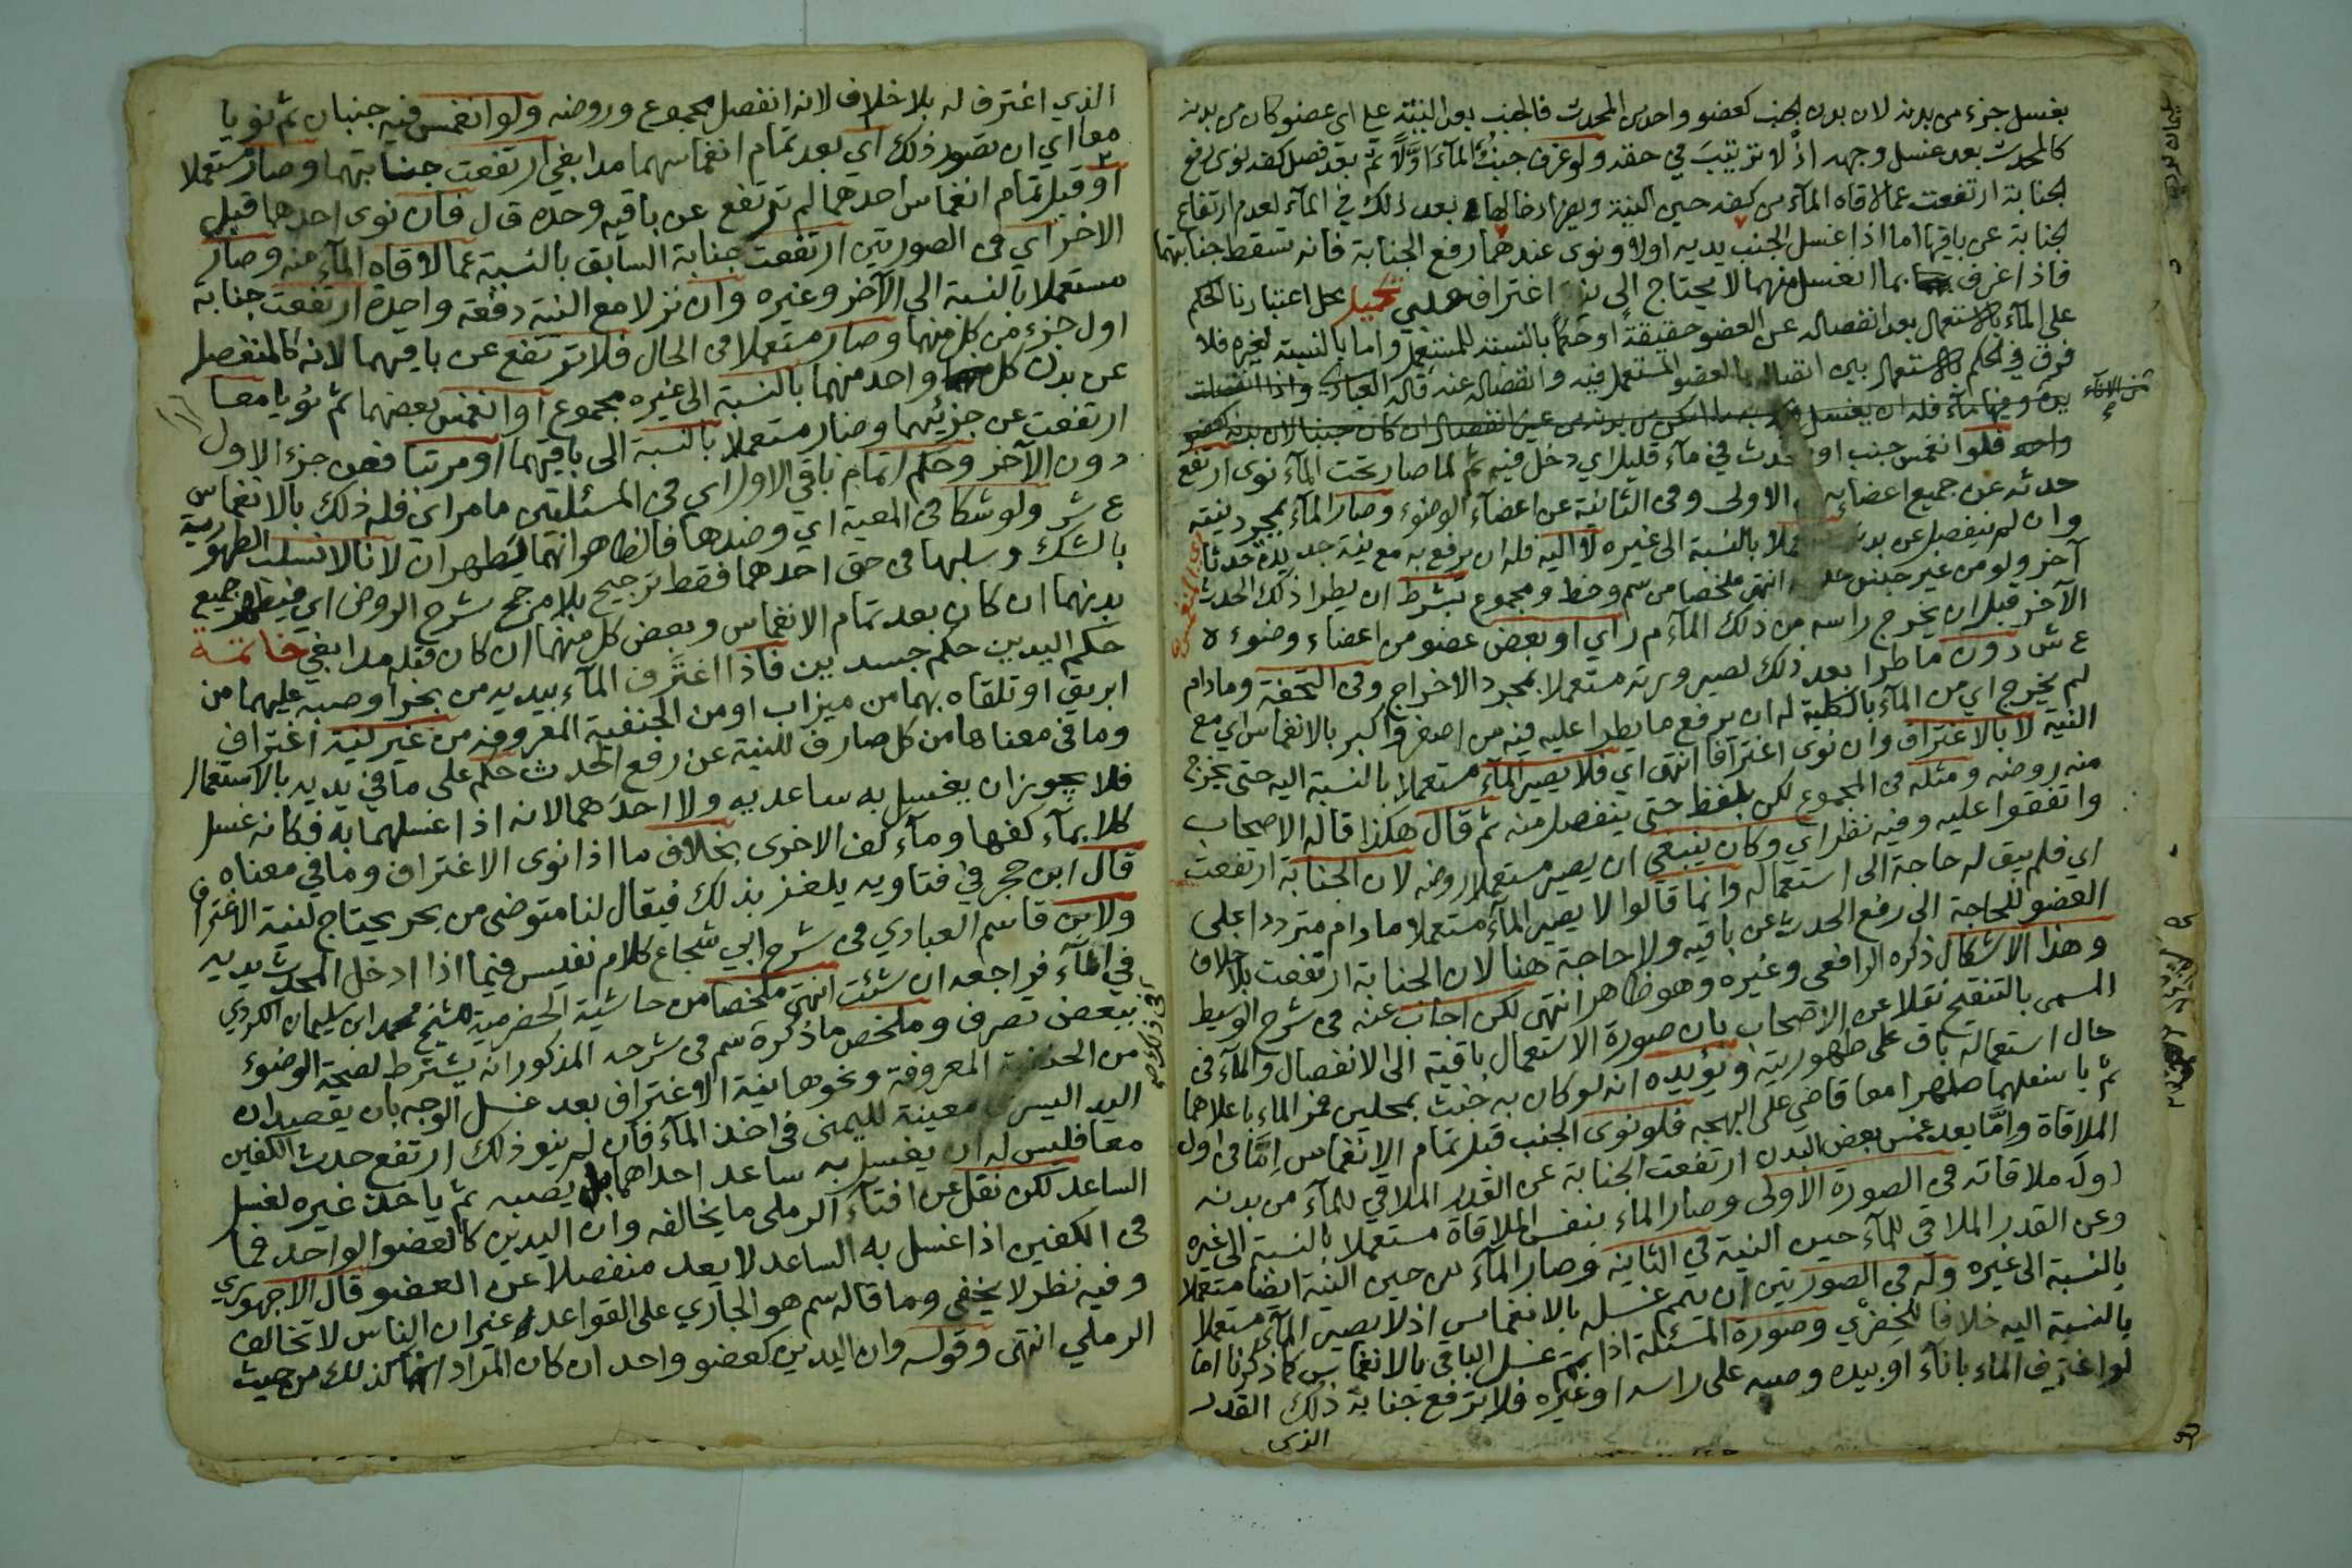 بغسل جزء من بدنه لان بدن الجنب كعضو واحد من المحدث فالجنب بعد النية على اي عضو كان من بدنه
كالمحدث بعد غسل وجهه اذ لا ترتيب في حقه ولو غرف جنب المآء اولا ثم بعد فصل كفه نوى رفع
الجنابة ارتفعت عما لاقاه المآء من كفه حين النية ويضر ادخالها بعد ذلك في المآء لعدم ارتفاع
الجنابة عن باقيها اما اذا غسل الجنب يديه اولا ونوى عندهما رفع الجنابة فانه تسقط جنابتهما
فاذا اغرف بما انغسل منهما لا يحتاج الى نية اغتراف حلبي تكميل محل اعتبارنا الحكم
على المآء بالاستعمال بعد انفصاله عن العضو حقيقة او حكما بالنسبة للمستعمل واما بالنسبة لغيره فلا
فرق في الحكم بالاستعمال بين اتصاله بالعضو المستعمل فيه وانفصاله عنه قاله العبادي واذا انفصلت
يده وفيها مآء فله ان يغسل
واحد فلو انغمس جنب او محدث في مآء قليل اي دخل فيه ثم لما صار تحت المآء نوى ارتفع
حدثه عن جميع اعضايه الاولى وفي الثانية عن اعضآء الوضوء وصار المآء بمجرد نيته
وان لم ينفصل عن بدنه بالنسبة الى غيره لا اليه فله ان يرفع به مع نية جديدة حدثا
آخر ولو من غير جنس انتهى ملخصا من سم وخط ومجموع بشرط ان يطرا ذلك الحدث
الآخر قبل ان يخرج راسه من ذلك المآء م ر اي او بعض عضو من اعضاء وضوءه
ع ش دون ما طرا بعد ذلك لصيرورته مستعملا بمجرد الاخراج وفي التحفة وما دام
لم يخرج اي من المآء بالكلية له ان يرفع ما يطرا عليه فيه من اصغر واكبر بالانغماس اي مع
النية لا بالاغتراف وان نوى اغترافا انتهى اي فلا يصير المآء مستعملا بالنسبة اليه حتى يخرج
منه روضه ومثله في المجموع لكن بلفظ حتى ينفصل منه ثم قال هكذا قاله الاصحاب
واتفقوا عليه وفيه نظر اي وكان ينبغي ان يصير مستعملا روضه لان الجنابة ارتفعت
اي فلم يبق له حاجة الى استعماله وانما قالوا لا يصير المآء مستعملا ما دام مترددا على
العضو للحاجة الى رفع الحدث عن باقيه ولا حاجة هنا لان الجنابة ارتفعت بلا خلاف
وهذا الاشكال ذكره الرافعي وغيره وهو ظاهر انتهى لكن اجاب عنه في شرح الوسيط
المسمى بالتنقيح نقلا عن الاصحاب بان صورة الاستعمال باقية الى الانفصال والمآء في
حال استعماله باق على طهوريته ويؤيده انه لو كان به خبث بمحلين فمر الماء باعلاهما
ثم باسفلهما طهرا معا قاضي على البهجه فلو نوى الجنب قبل تمام الانغماس اما في اول
الملاقاة واما بعد غمس بعض البدن ارتفعت الجنابة عن القدر الملاقي للمآء من بدنه
اول ملاقاته في الصورة الاولى وصار الماء بنفس الملاقاة مستعملا بالنسبة الى غيره
وعن القدر الملاقي للمآء حين النية في الثانية وصار المآء من حين النية ايضا مستعملا
بالنسبة الى غيره وله في الصورتين ان يتمم غسله بالانغماس اذ لا يصير المآء مستعملا
بالنسبة اليه خلافا للخضري وصورة المسئلة اذا تمم غسل الباقي بالانغماس كما ذكرنا اما
لو اغترف الماء باناء او بيده وصبه على راسه او غيره فلا ترفع جنابة ذلك القدر
الذى
الذي اغترف له بلا خلاف لانه انفصل مجموع وروضه ولو انغمس فيه جنبان ثم نويا
معا اي ان تصور ذلك اي بعد تمام انغماسهما مدابغي ارتفعت جنابتهما وصار مستعملا
او قبل تمام انغماس احدهما لم ترتفع عن باقيه وحده ق ل فان نوى احدهما قبل
الاخر اي في الصورتين ارتفعت جنابة السابق بالنسبة عما لاقاه المآء منه وصار
مستعملا بالنسبة الى الآخر وغيره وان نزلا مع النية دفعة واحدة ارتفعت جنابة
اول جزء من كل منهما وصار مستعملا في الحال فلا ترتفع عن باقيهما لانه كالمنفصل
عن بدن كل واحد منهما بالنسبة الى غيره مجموع او انغمس بعضهما ثم نويا معا
ارتفعت عن جزئيهما وصار مستعملا بالنسبة الى باقيهما او مرتبا فعن جزء الاول
دون الآخر وحكم اتمام باقي الاول اي في المسئلتين ما مر اي فله ذلك بالانغماس
ع ش ولو شكا في المعية اي وضدها فالظاهر انهما يطهران لانا لا نسلب الطهورية
بالشك وسلبها في حق احدهما فقط ترجيح بلا مرجح شرح الروض اي فيطهر جميع
بدنهما ان كان بعد تمام الانغماس وبعض كل منهما ان كان قبله مدابغي خاتمة
حكم اليدين حكم جسدين فاذا اغترف المآء بيديه من بحر او صبه عليهما من
ابريق او تلقاه بهما من ميزاب او من الحنفية المعروفه من غير نية اغتراف
وما في معناها من كل صارف للنية عن رفع الحدث حكم على ما في يديه بالاستعمال
فلا يجوز ان يغسل به ساعديه ولا احدهما لانه اذا غسلهما به فكانه غسل
كلا بمآء كفها ومآء كف الاخرى بخلاف ما اذا نوى الاغتراف وما في معناه
قال ابن حجر في فتاويه يلغز بذلك فيقال لنا متوضئ من بحر يحتاج لنية الاغتراف
ولابن قاسم العبادي في شرح ابي شجاع كلام نفيس فيما اذا ادخل المحدث يديه
في المآء فراجعه ان شئت انتهى ملخصا من حاشية الحضرمية للشيخ محمد ابن سليمان الكردي
ببعض تصرف وملخص ما ذكره سم في شرحه المذكور انه يشترط لصحة الوضوء
من الحنفية المعروفة ونحوها نية الاغتراف بعد غسل الوجه بان يقصد ان
اليد اليسرى معينة لليمنى في اخذ المآء فان لم ينو ذلك ارتفع حدث الكفين
معا فليس له ان يغسل به ساعد احداهما بل يصبه ثم ياخذ غيره لغسل
الساعد لكن نقل عن افتآء الرملي ما يخالفه وان اليدين كالعضو الواحد فما
في الكفين اذا غسل به الساعد لا يعد منفصلا عن العضو قال الاجهوري
وفيه نظر لا يخفى وما قاله سم هو الجاري على القواعد غير ان الناس لا تخالف
الرملي انتهى وقوله وان اليدين كعضو واحد ان كان المراد انهما كذلك من حيث